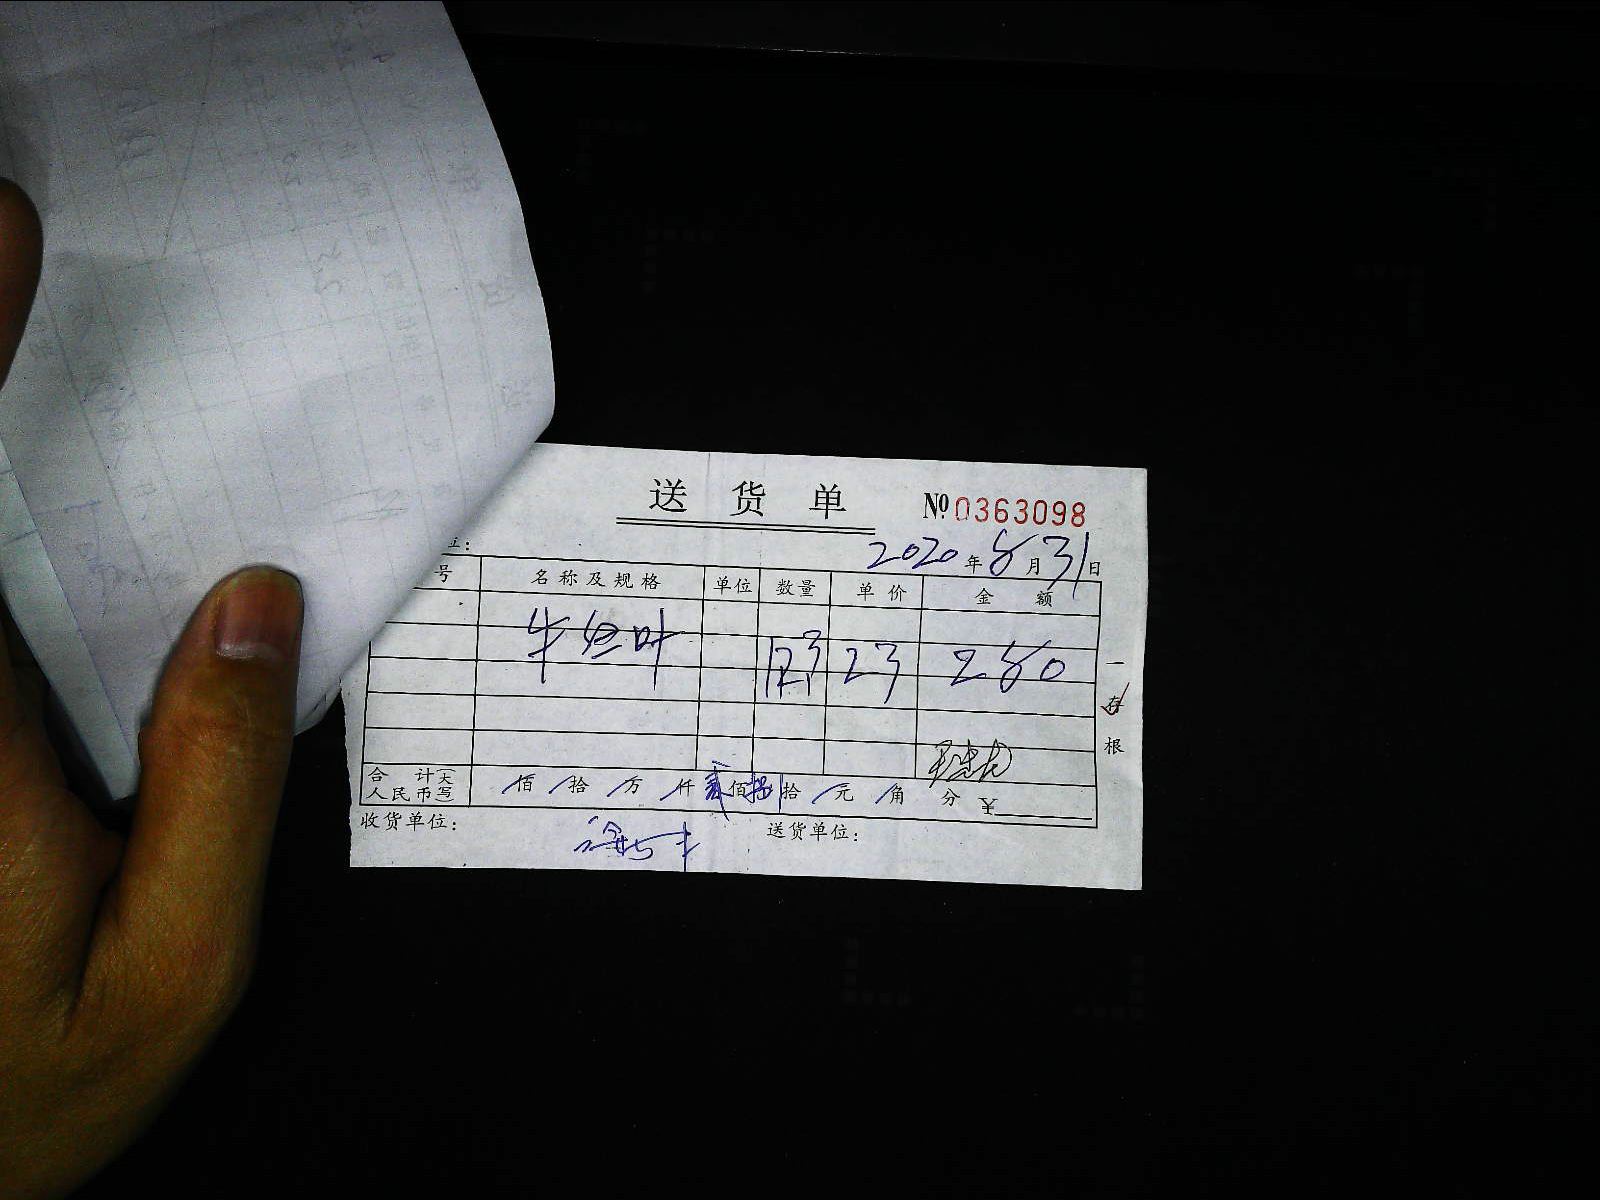 送货单 № 0363098
2020年8月31日
号 名称及规格 单位 数量 单价 金额
牛 叶 12.3 23 280
一存根
合计(大写)人民币 佰 拾 万 仟 贰佰捌拾 元 角 分 ¥
收货单位: 送货单位: